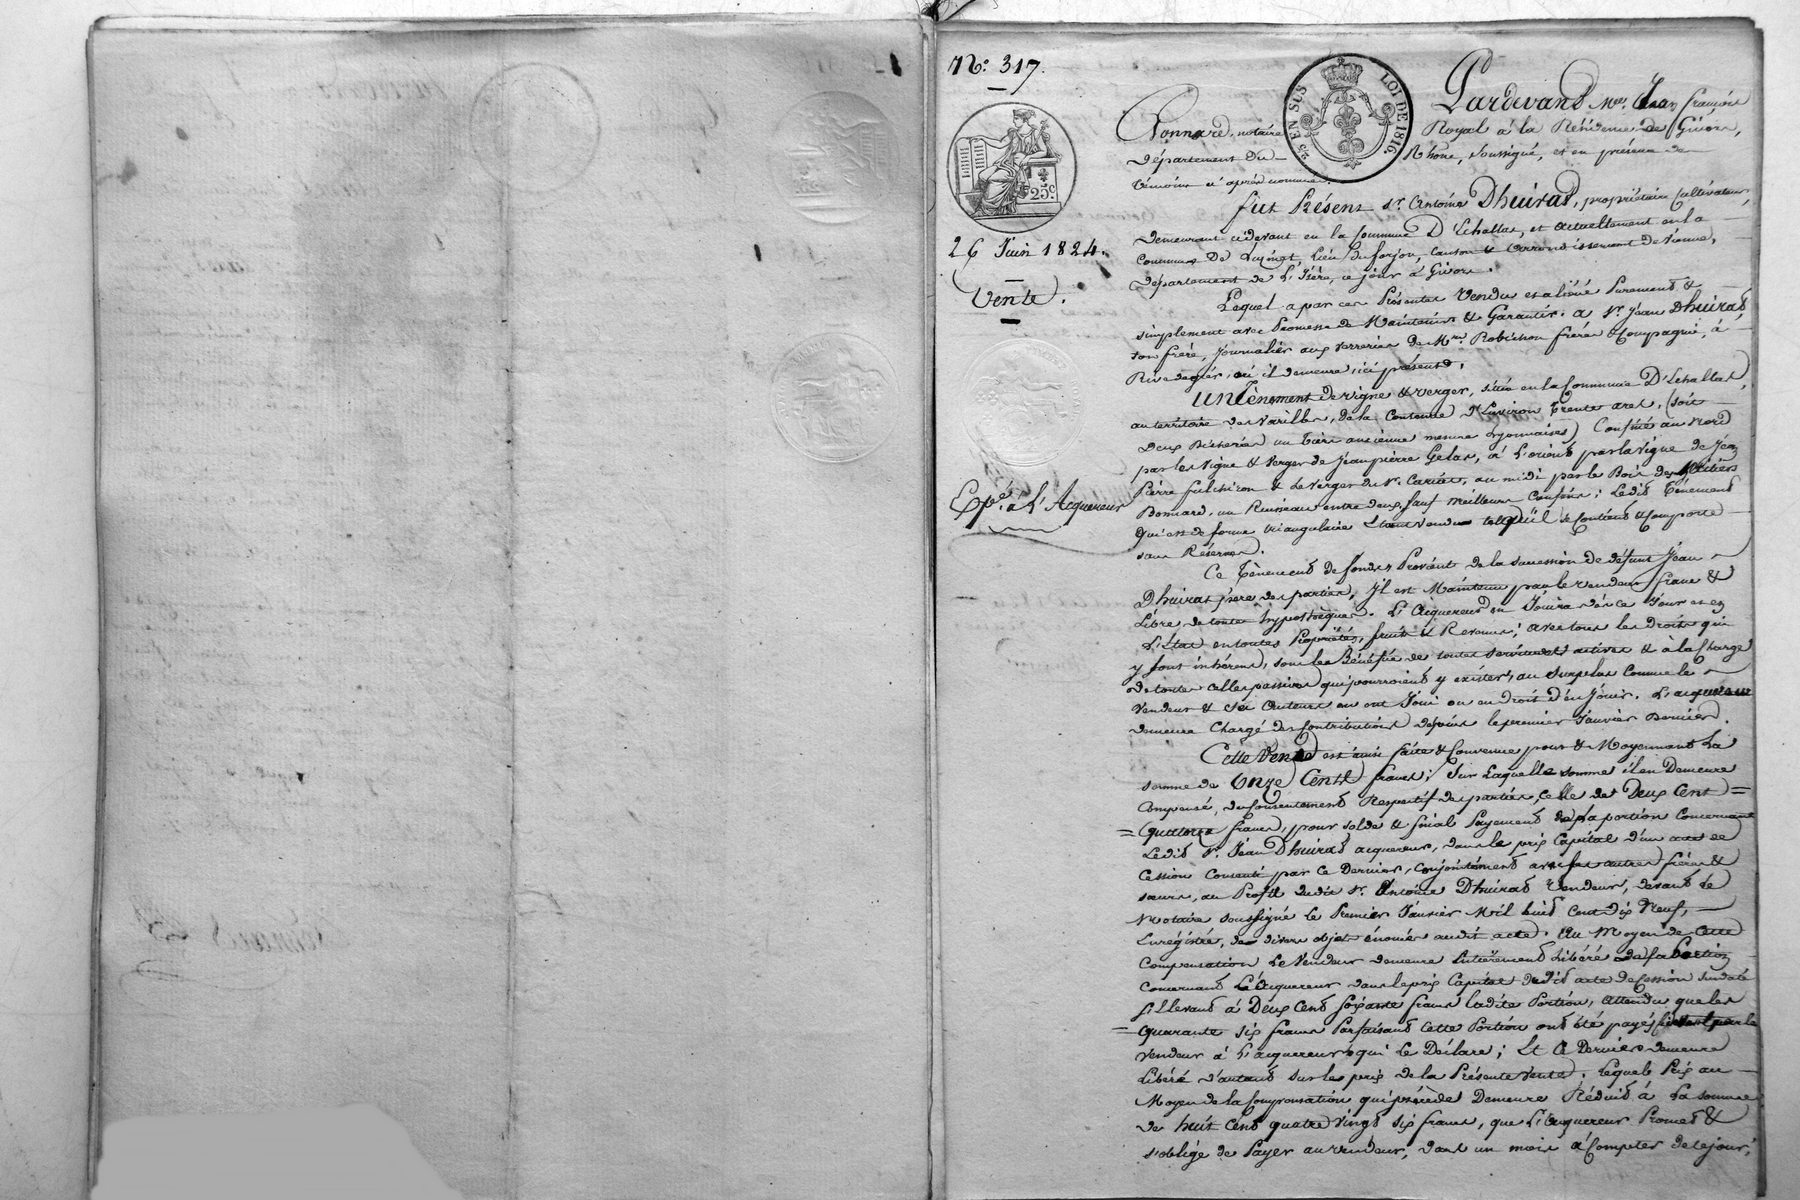 N.º 317.
25 EN SUS
LOI DE 1816.
25.c
26 Juin 1824.
Vente.
Expé. à L'Acquereur
Pardevant Mre. Jean françois
Bonnard, notaire Royal à la Résidence de Givors,
Département du Rhône, soussigné, et en présence de
témoins ci après nommés.
fut Présent Sr. Antoine Dhuirad, propriétaire Cultivateur,
demeurant cidevant en la Commune D'Echallas, et actuellement en la
Commune De Luzinet, Lieu du forjon, canton & arrondissement de Vienne,
Département de L'Isère, ce jour à Givors.
Lequel a par ces Présentes Vendu et aliéné Purement &
simplement avec Promesse de Maintenir & Garantir. à Sr. Jean Dhuirad
son frère, Journalier aux verreries de Mrs. Robichon frères & Compagnie, à
Rivedegier, où il demeure, ici présent.
UN Tènement de vigne & verger, situé en la Commune D'Echallas,
au territoire des Varilles, de la Contenue d'Environ trente ares, (soit
Deux Bicherées un tiers ancienne mesure Lyonnaises) Confiné au Nord
par les Vigne & Verger de Jeanpierre Gelas, à L'orient par la Vigne de Jean
Pierre fulchiron & le Verger du Sr. Carier, au midi par le Bois des héritiers
Bonnard, un Ruisseau entre deux, sauf meilleurs Confins; Ledit Tènement
Qui est de forme triangulaire Etant Vendu tel qu'il se Contient & Comporte
sans Réserves.
Ce Tènement de fonds Provient de la succession de défunt Jean
Dhuirat père des parties, Il est Maintenu par le vendeur franc &
Libre de toute hypothèque. L'Acquereur en Jouira dès ce Jour et en
L'Etat en toutes Propriétés, fruits & Revenus; avec tous les Droits qui
y sont inhérens, sous le Bénéfice de toutes servitudes actives & à la Charge
de toutes celles passives qui pourroient y exister, au surplus Comme le
Vendeur & ses Auteurs en ont Joui ou eu droit d'en Jouir. L'acquereur
demeure Chargé des Contributions depuis le premier Janvier Dernier.
Cette Vente est ainsi faite & Convenue pour & Moyennant La
somme de Onze Cents francs; Sur Laquelle somme il en Demeure
Compensé, du Consentement Respectif des parties, celle de Deux Cent
Quatorze francs, pour solde & final Payement de la portion Concernant
Ledit Sr. Jean Dhuirad acquereur, dans le prix Capital d'un acte de
Cession Consenti par ce Dernier, Conjointement avec ses autres frères &
sœurs, au Profit dudit Sr. Antoine Dhuirad Vendeur, devant Le
Notaire soussigné le Premier Janvier Mil huit Cent Dix Neuf,
Enrégistré, de divers objets énoncés audit acte. Au Moyen de Cette
Compensation Le Vendeur demeure Entièrement Libéré de la Portion
Concernant L'Acquereur dans le prix Capital dudit acte de Cession susdaté
S'Elevant à Deux Cent Soixante francs ladite Portion, attendu que les
Quarante Six francs Parfaisant Cette Portion ont été payés par le
Vendeur à L'acquereur qui Le Déclare; Et Ce Dernier demeure
Libéré d'autant sur le prix de la Présente Vente. Lequel Prix au
Moyen de la Compensation qui précède Demeure Réduit à La somme
de huit Cent quatre Vingt Six francs, que L'acquereur Promet &
s'oblige de Payer au Vendeur, dans un mois à Compter de ce jour,